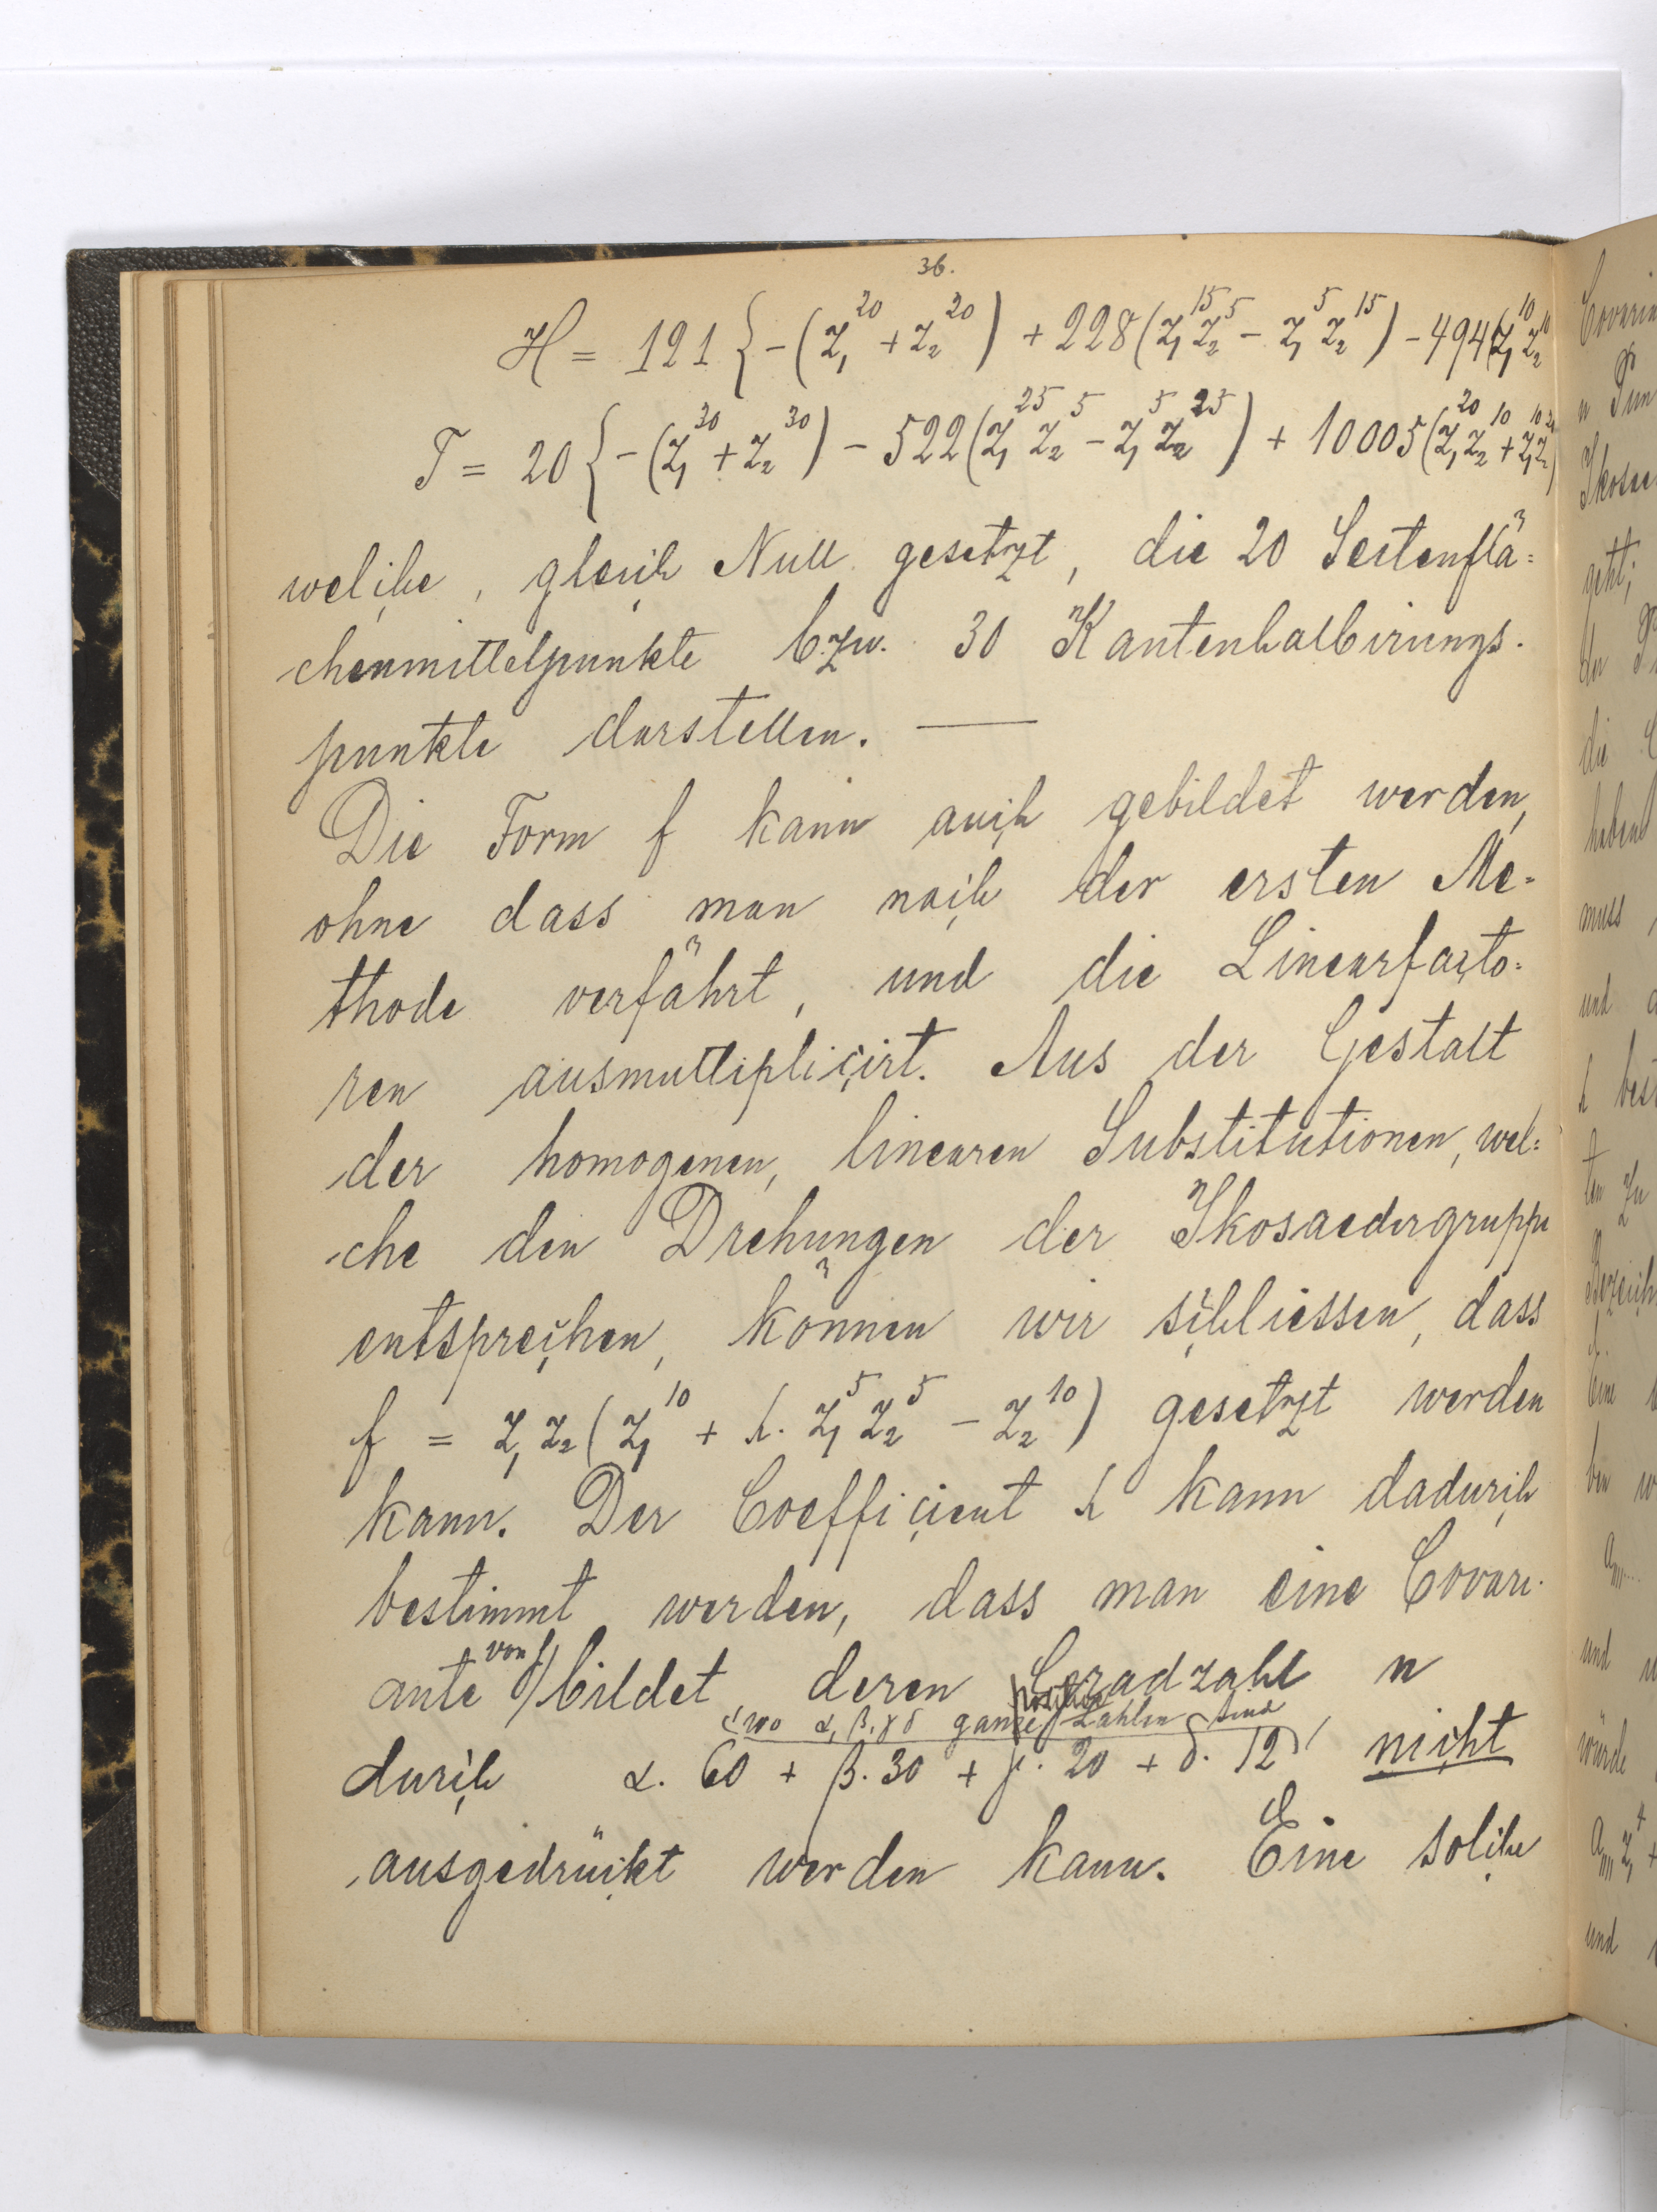 36.
H = 121 { -(z₁²⁰ + z₂²⁰) + 228(z₁¹⁵z₂⁵ - z₁⁵z₂¹⁵) - 494(z₁¹⁰z₂¹⁰
T = 20 { -(z₁³⁰ + z₂³⁰) - 522(z₁²⁵z₂⁵ - z₁⁵z₂²⁵) + 10005(z₁²⁰z₂¹⁰ + z₁¹⁰z₂²⁰)
welche, gleich Null gesetzt, die 20 Seitenflä=
chenmittelpunkte bzw. 30 Kantenhalbirungs-
punkte darstellen. —
Die Form f kann auch gebildet werden,
ohne dass man nach der ersten Me=
thode verfährt, und die Linearfacto=
ren ausmultiplicirt. Aus der Gestalt
der homogenen, linearen Substitutionen, wel=
che den Drehungen der Ikosaedergruppe
entsprechen, können wir schliessen, dass
f = z₁z₂(z₁¹⁰ + λ. z₁⁵z₂⁵ - z₂¹⁰) gesetzt werden
kann. Der Coefficient λ kann dadurch
bestimmt werden, dass man eine Covari-
ante von f bildet, deren Gradzahl n
(wo α, β, γ δ ganze positive Zahlen sind)
durch α. 60 + β. 30 + γ. 20 + δ. 12 nicht
ausgedrückt werden kann. Eine solche
Covarian
muss,
und
würde
und